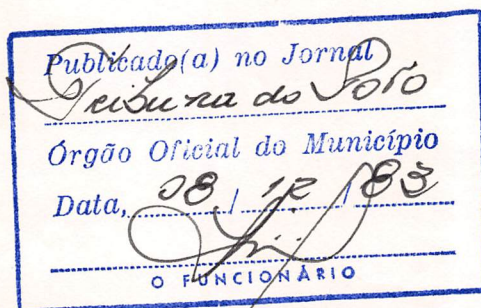 Publicado(a) no Jornal
Tribuna do Povo
Órgão Oficial do Município
Data, 08 / 12 / 83
O FUNCIONÁRIO